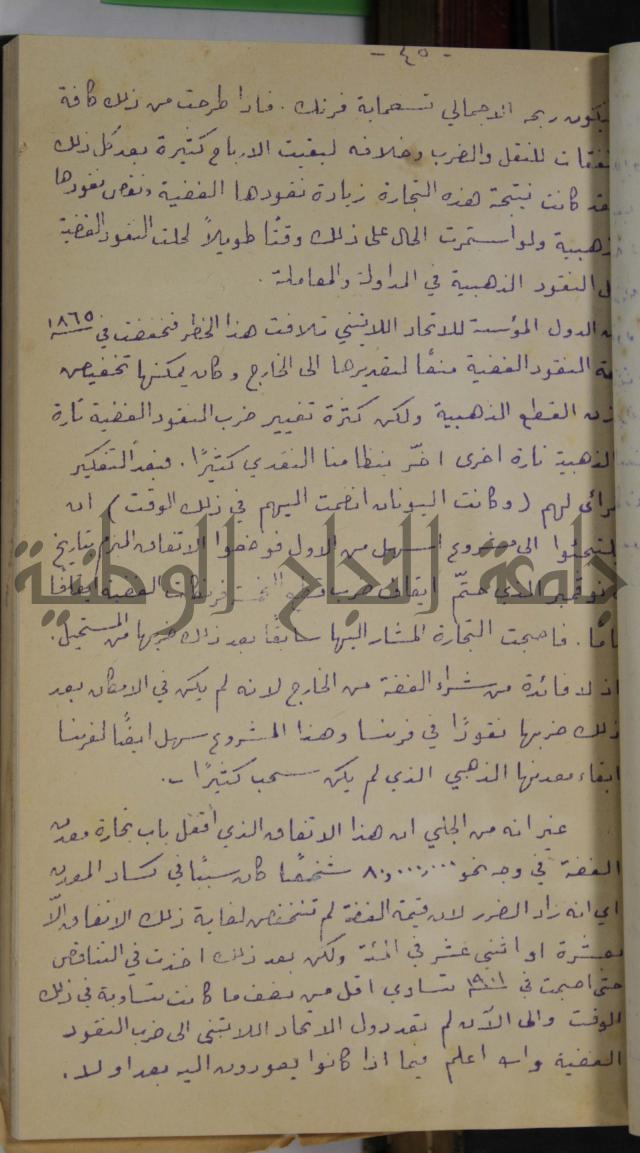 - ٤٥ -
فيكون ربحه الاجمالي تسعماية فرنك. فاذا طرحت من ذلك كافة
نفقات للنقل والضرب وخلافه لبقيت الارباح كثيرة بعد كل ذلك
فقد كانت نتيجة هذه التجارة زيادة نقودها الفضية ونقص نقودها
الذهبية ولو استمرت الحال على ذلك وقتًا طويلاً لحلت النقود الفضية
النقود الذهبية في المداولة والمعاملة.
الدول المؤسسة للاتحاد اللاتيني تلافت هذا الخطر فخفضت في سنة ١٨٦٥
النقود الفضية منعًا لتصديرها الى الخارج وكان يمكنها تخفيض
وزن القطع الذهبية ولكن كثرة تغيير ضرب النقود الفضية تارة
الذهبية تارة اخرى اضرّ بنظامنا النقدي كثيرًا. فبعد التفكير
تراءى لهم (وكانت اليونان انضمت اليهم في ذلك الوقت) ان
يلتجئوا الى مشروع اسهل من الاول فوضعوا الاتفاق المبرم بتاريخ
نوفمبر الذي حتّم ايقاف ضرب قطع الخمسة فرنكات الفضية ايقافًا
تامًا. فاصبحت التجارة المشار اليها سابقًا بعد ذلك ضربها من المستحيل.
اذ لا فائدة من شراء الفضة من الخارج لانه لم يكن في الامكان بعد
ذلك ضربها نقودًا في فرنسا وهذا المشروع سهل ايضًا لفرنسا
ابقاء معدنها الذهبي الذي لم يكن سحب كثيرًا.
غير انه من الجلي ان هذا الاتفاق الذي أقفل باب تجارة معدن
الفضة في وجه نحو ٨٠،٠٠٠،٠٠٠ شخصًا كان سببًا في كساد المعدن
اي انه زاد الضرر لان قيمة الفضة لم تنخفض لغاية ذلك الاتفاق الاّ
بعشرة او اثني عشر في المئة ولكن بعد ذلك اخذت في التناقص
حتى اصبحت في سنة ١٩٠١ تساوي اقل من نصف ما كانت تساويه في ذلك
الوقت والى الآن لم تعد دول الاتحاد اللاتيني الى ضرب النقود
الفضية والله اعلم فيما اذا كانوا يعودون اليه بعد او لا.
جامعة النجاح الوطنية